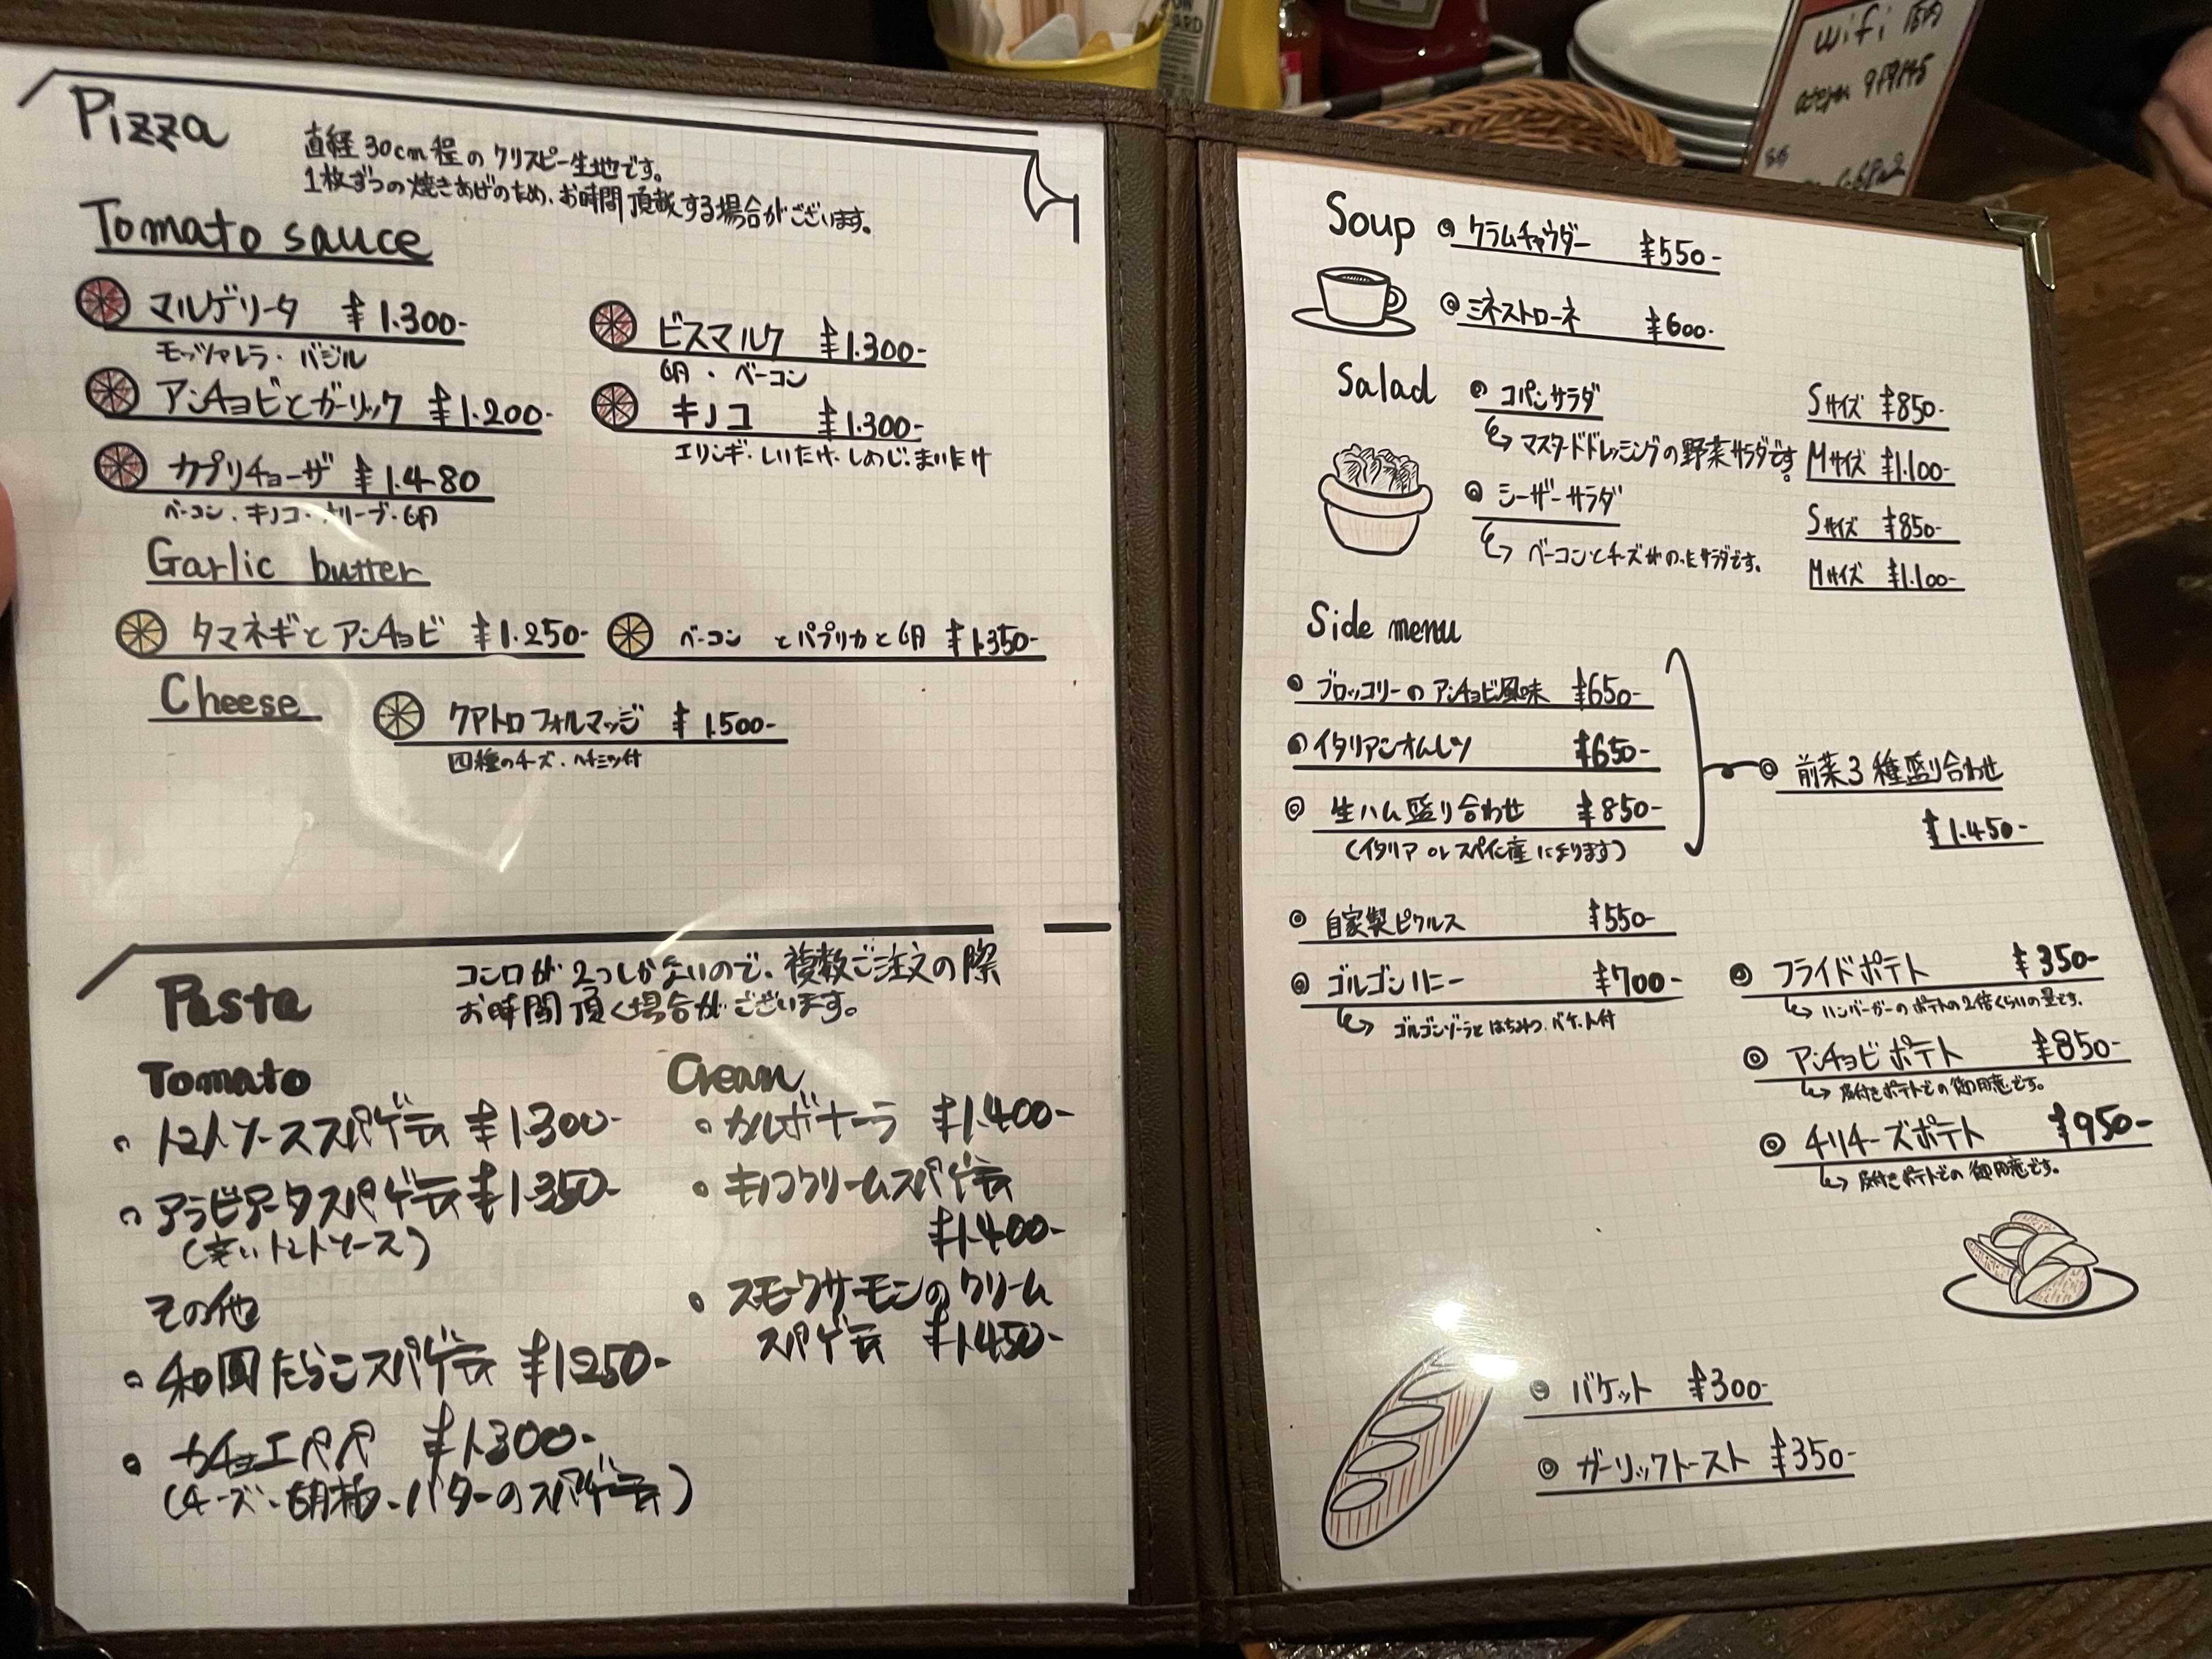 Pizza
直経30cm程のクリスピー生地です。
1枚ずつの焼きあげのため、お時間頂戴する場合がございます。
Tomato sauce
マルゲリータ ¥1.300-
モッツァレラ・バジル
アンチョビとガーリック ¥1.200-
カプリチョーザ ¥1.480
ベーコン・キノコ・オリーブ・卵
ビスマルク ¥1.300-
卵・ベーコン
キノコ ¥1.300-
エリンギ・しいたけ・しめじ・まいたけ
Garlic butter
タマネギとアンチョビ ¥1.250-
ベーコン とパプリカと卵 ¥1.350-
Cheese
クアトロフォルマッジ ¥1.500-
四種のチーズ・ハチミツ付
Pasta
コンロが2つしかないので、複数ご注文の際
お時間頂く場合がございます。
Tomato
トマトソーススパゲティ ¥1.300-
アラビアータスパゲティ ¥1.350-
(辛いトマトソース)
その他
和風たらこスパゲティ ¥1250-
カチョエペペ ¥1.300-
(チーズ・胡椒・バターのスパゲティ)
Cream
カルボナーラ ¥1.400-
キノコクリームスパゲティ
¥1.400-
スモークサーモンのクリーム
スパゲティ ¥1.450-
Soup
クラムチャウダー ¥550-
ミネストローネ ¥600-
Salad
コパンサラダ
マスタードドレッシングの野菜サラダです。
Sサイズ ¥850-
Mサイズ ¥1.100-
シーザーサラダ
ベーコンとチーズがのったサラダです。
Sサイズ ¥850-
Mサイズ ¥1.100-
Side menu
ブロッコリーのアンチョビ風味 ¥650-
イタリアンオムレツ ¥650-
生ハム盛り合わせ ¥850-
(イタリア or スペイン産になります)
前菜3種盛り合わせ
¥1.450-
自家製ピクルス ¥550-
ゴルゴンハニー ¥700-
ゴルゴンゾーラとはちみつ、バケット付
フライドポテト ¥350-
ハンバーガーのポテトの2倍くらいの量です。
アンチョビポテト ¥850-
皮付きポテトでの御用意です。
チリチーズポテト ¥950-
皮付きポテトでの御用意です。
バケット ¥300-
ガーリックトースト ¥350-
wifi